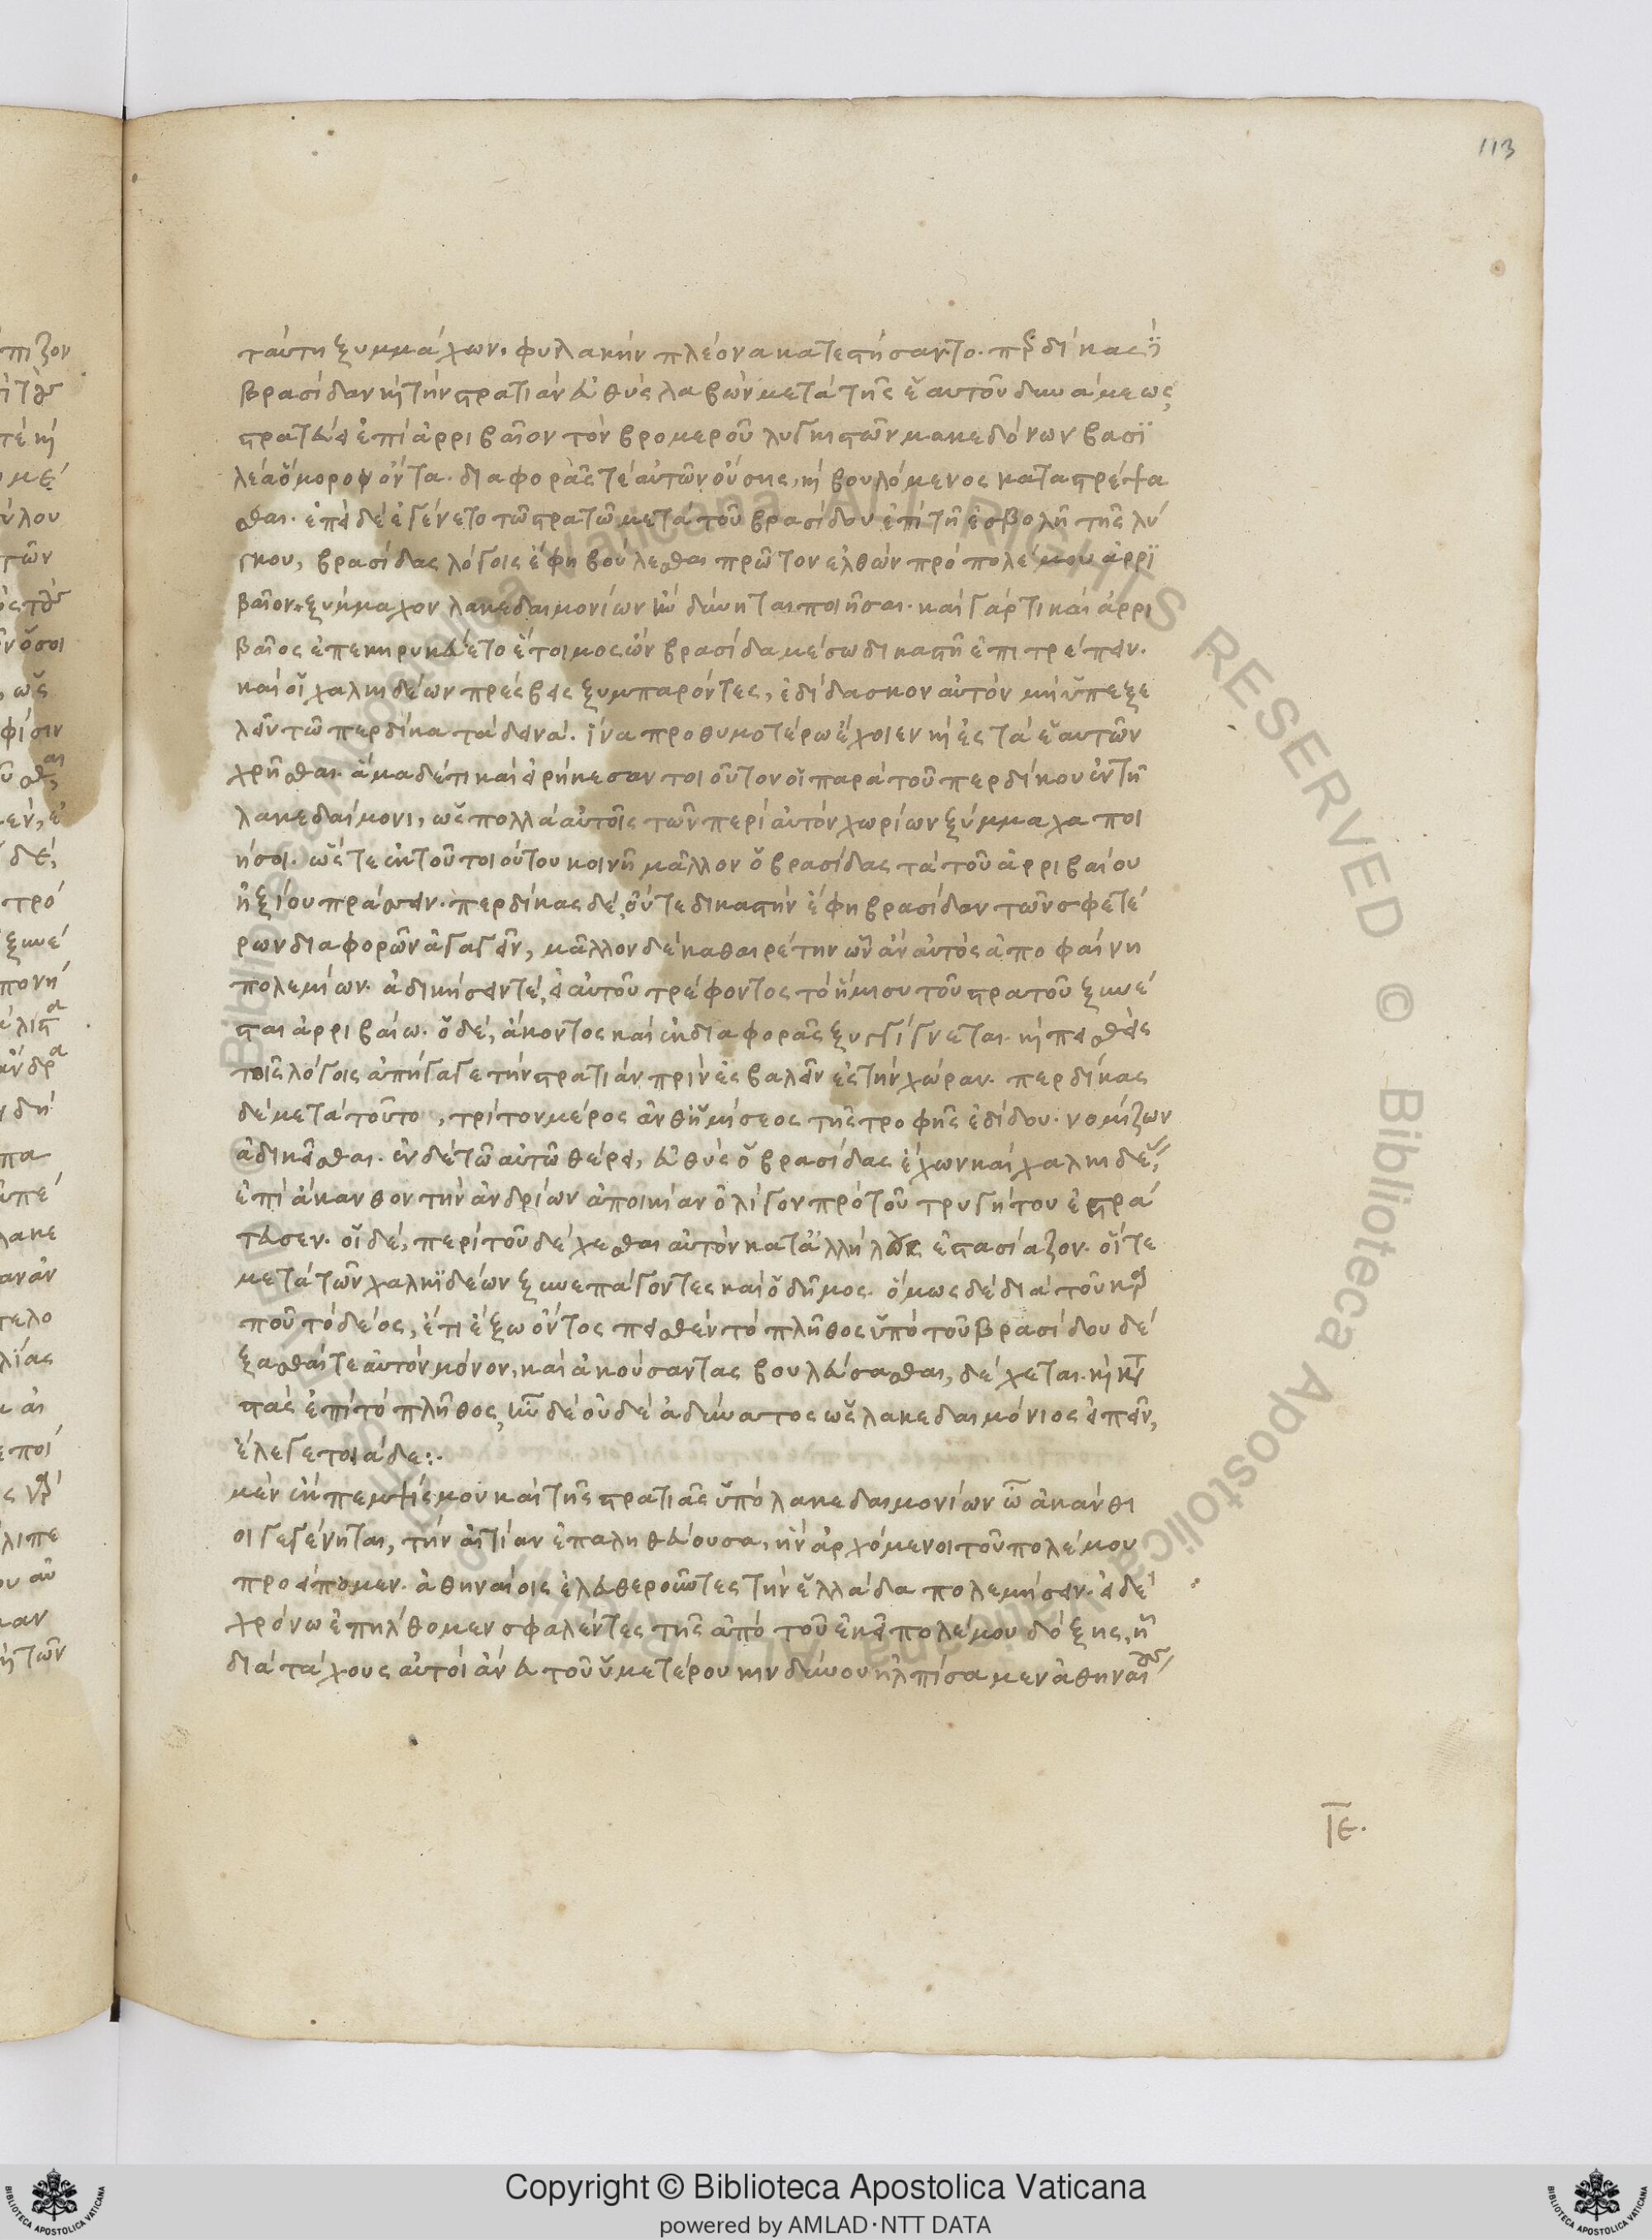 113
ταύτη ξυμμάχων. φυλακὴν πλέονα κατεστήσαντο. πρδίκας
βρασίδαν κ τὴν στρατιὰν εὐθὺς λαβὼν μετὰ τῆς ἑαυτοῦ δυνάμεως,
στρατεύει ἐπὶ ἀρριβαῖον τὸν βρομεροῦ λυγκηστῶν μακεδόνων βασϊ
λέα ὅμορον ὄντα. διαφορᾶς τὲ αὐτῶ οὔσης, κ βουλόμενος καταστρέψα
σθαι. ἐπεὶ δὲ ἐγένετο τῶ στρατῶ μετὰ τοῦ βρασίδου ἐπὶ τῆ ἐσβολῆ τῆς λύ
γκου, βρασίδας λόγοις ἔφη βούλεσθαι πρῶτον ἐλθὼν πρὸ πολέμου ἀρρϊ
βαῖον. ξύμμαχον λακεδαιμονίων ἢν δύνηται ποιῆσαι. καὶ γάρ τι καὶ ἀρρι
βαῖος ἐπεκηρυκεύετο ἑτοῖμος ὢν βρασίδα μέσω δικαστῆ ἐπιτρέπειν.
καὶ οἱ χαλκιδέων πρέσβεις ξυμπαρόντες, ἐδίδασκον αὐτὸν μὴ ὑπεξε
λεῖν τῶ περδίκα τὰ δεινά. ἵνα προθυμοτέρω ἔχοιεν κ ἐς τὰ ἑαυτῶν
χρῆσθαι. ἅμα δέ τι καὶ εἰρήκεσαν τοιοῦτον οἱ παρὰ τοῦ περδίκου ἐν τῆ
λακεδαίμονι, ὡς πολλὰ αὐτοῖς τῶν περὶ αὐτὸν χωρίων ξύμμαχα ποι
ήσοι. ὥστε ἐκ τοῦ τοιούτου κοινῆ μᾶλλον ὁ βρασίδας τὰ τοῦ ἀρριβαίου
ἠξίου πράσσειν. περδίκας δὲ, οὔτε δικαστὴν ἔφη βρασίδαν τῶν σφετέ
ρων διαφορῶν ἀγαγεῖν, μᾶλλον δὲ καθαιρέτην ὧν ἂν αὐτὸς ἀποφαίνη
πολεμίων. ἀδικήσειν τὲ, εἰ αὐτοῦ τρέφοντος τὸ ἥμισυ τοῦ στρατοῦ ξυνέ
σται ἀρριβαίω. ὁ δὲ, ἄκοντος καὶ ἐκ διαφορᾶς ξυγγίγνεται. κ πεισθεὶς
τοῖς λόγοις ἀπήγαγε τὴν στρατιὰν πρὶν ἐσβαλεῖν ἐς τὴν χώραν. περδίκας
δὲ μετὰ τοῦτο, τρίτον μέρος ἀνθἡμίσεος τῆς τροφῆς ἐδίδου. νομίζων
ἀδικεῖσθαι. ἐν δὲ τῶ αὐτῶ θέρει, εὐθὺς ὁ βρασίδας ἔχων καὶ χαλκιδέ,
ἐπὶ ἄκανθον τὴν ἀνδρίων ἀποικίαν ὀλίγον πρὸ τοῦ τρυγήτου ἐστρά
τευσεν. οἱ δὲ, περὶ τοῦ δέχεσθαι αὐτὸν κατἀλλήλους ἐστασίαζον. οἵ τε
μετὰ τῶν χαλκϊδέων ξυνεπάγοντες καὶ ὁ δῆμος. ὅμως δὲ διὰ τοῦ καρ
ποῦ τὸ δέος, ἔτι ἔξω ὄντος πεισθὲν τὸ πλῆθος ὑπὸ τοῦ βρασίδου δέ
ξασθαί τε αὐτὸν μόνον, καὶ ἀκούσαντας βουλεύσασθαι, δέχεται. κ κατ
στὰς ἐπὶ τὸ πλῆθος, ἦν δὲ οὐδὲ ἀδύνατος ὡς λακεδαιμόνιος εἰπεῖν,
ἔλεγε τοιάδε:.
μὲν ἔκπεμψίς μου καὶ τῆς στρατιᾶς ὑπὸ λακεδαιμονίων ὦ ἀκάνθι
οι γεγένηται, τὴν αἰτίαν ἐπαληθεύουσα, ἣν ἀρχόμενοι τοῦ πολέμου
προείπομεν. ἀθηναίοις ἐλευθεροῦντες τὴν ἑλλάδα πολεμήσειν. εἰ δὲ
χρόνω ἐπήλθομεν σφαλέντες τῆς ἀπὸ τοῦ ἐκεῖ πολέμου δόξης, ἧ
διὰ τάχους αὐτοὶ ἄνευ τοῦ ὑμετέρου κινδύνου ἠλπίσαμεν ἀθηναί
ιε.
Copyright © Biblioteca Apostolica Vaticana
powered by AMLAD·NTT DATA